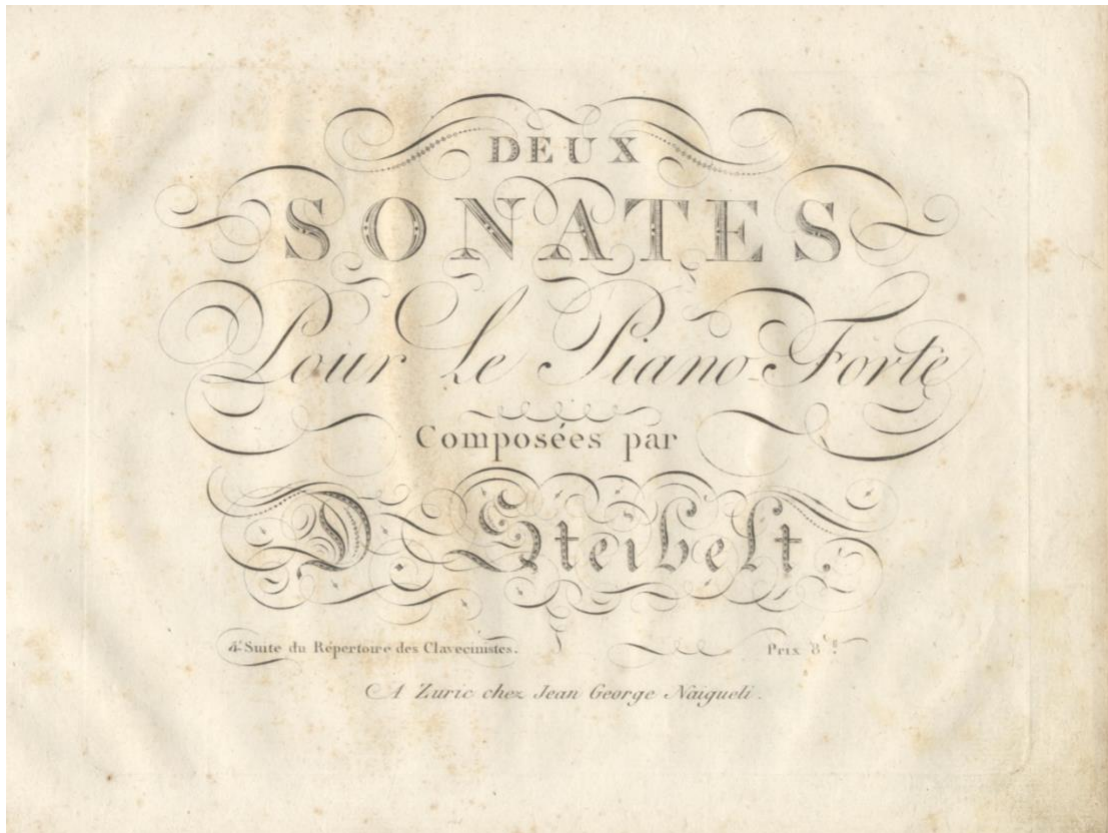 DEUX
SONATES
Pour Le Piano-Forte
Composées par
D. Steibelt.
Suite du Répertoire des Clavecinistes. Prix
A Zuric chez Jean George Naigueli.